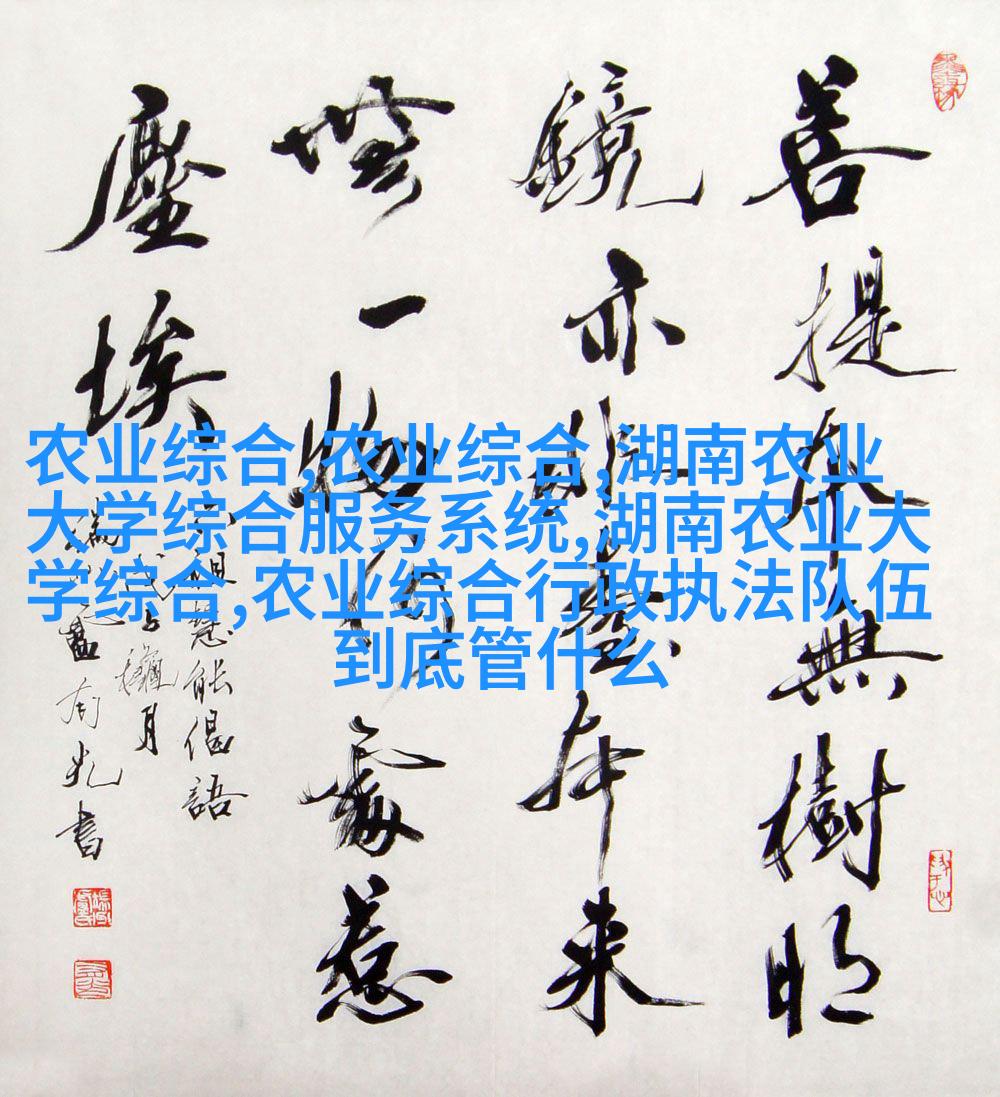 农业综合,农业综合,湖南农业
大学综合服务系统,湖南农业大
学综合,农业综合行政执法队伍
到底管什么
菩提本無樹明
鏡亦非臺本来
無一物何處惹
塵埃
六祖慧能偈語